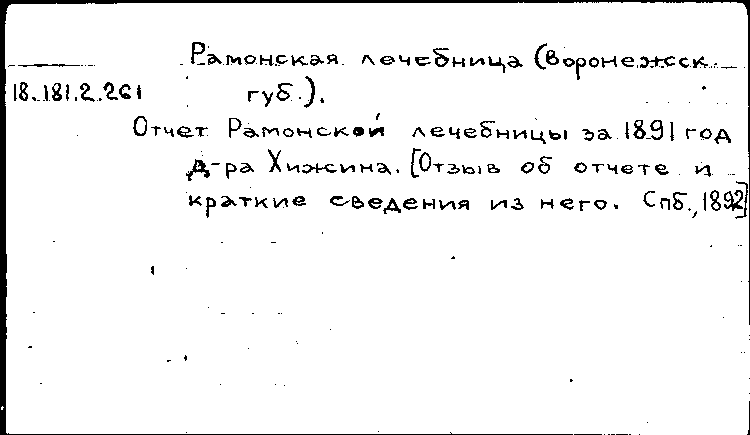 Рамонская лечебница (Воронежсск.
18.181.2.261 губ.).
Отчет Рамонской лечебницы за 1891 год
д-ра Хижина. [Отзыв об отчете и
краткие сведения из него. Спб., 1892]